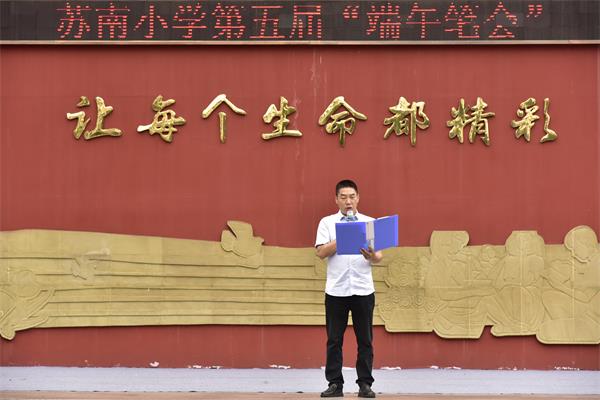 苏南小学第五届“端午笔会”
让每个生命都精彩